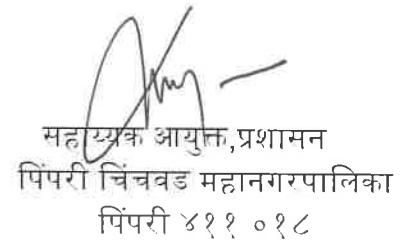 सहाय्यक आयुक्त,प्रशासन
पिंपरी चिंचवड महानगरपालिका
पिंपरी ४११ ०१८